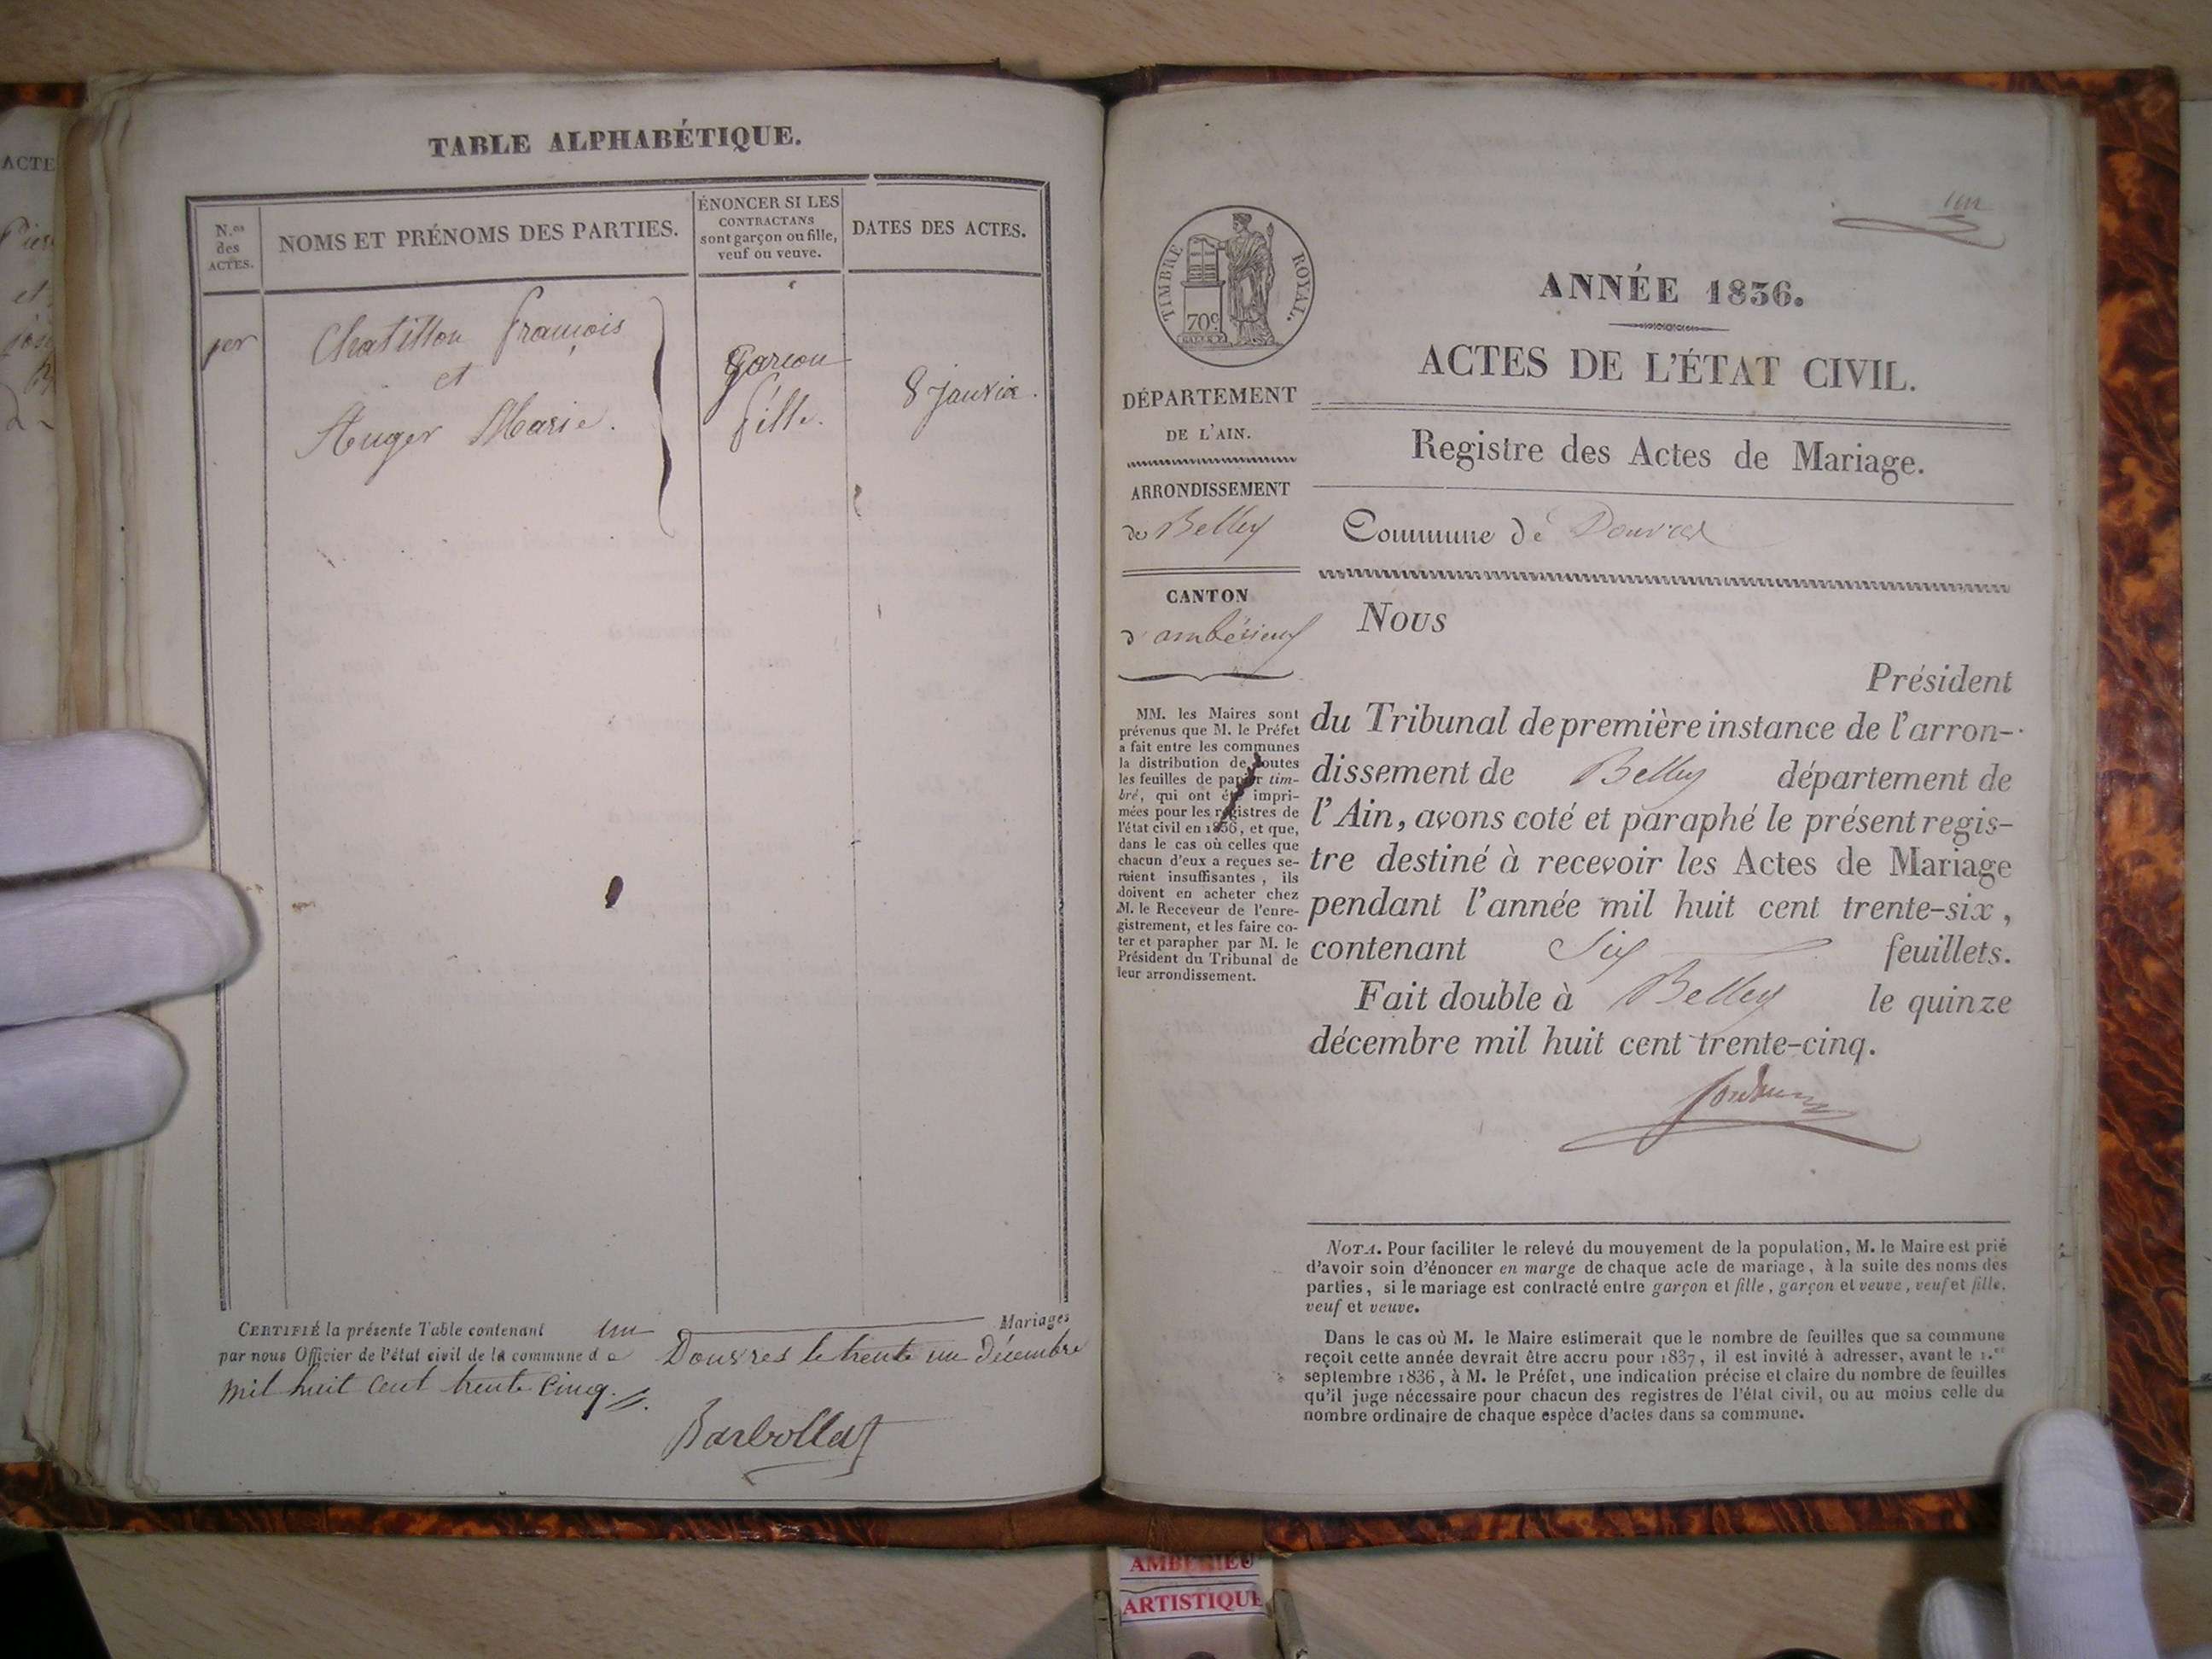 ACTE
TABLE ALPHABÉTIQUE.
N.os
des
ACTES.
NOMS ET PRÉNOMS DES PARTIES.
ÉNONCER SI LES
CONTRACTANS
sont garçon ou fille,
veuf ou veuve.
DATES DES ACTES.
1er
Chatillon François
et
Auger Marie.
garçon
fille.
8 janvier.
CERTIFIÉ la présente Table contenant un Mariages
par nous Officier de l'état civil de la commune de Douvres le trente un Décembre
mil huit cent trente cinq.
Barbollat
un
TIMBRE ROYAL.
70c
ANNÉE 1836.
ACTES DE L'ÉTAT CIVIL.
Registre des Actes de Mariage.
Commune de Douvres
DÉPARTEMENT
DE L'AIN.
ARRONDISSEMENT
de Belley
CANTON
d'ambérieux
MM. les Maires sont
prévenus que M. le Préfet
a fait entre les communes
la distribution de toutes
les feuilles de papier tim-
bré, qui ont été impri-
mées pour les registres de
l'état civil en 1836, et que,
dans le cas où celles que
chacun d'eux a reçues se-
raient insuffisantes, ils
doivent en acheter chez
M. le Receveur de l'enre-
gistrement, et les faire co-
ter et parapher par M. le
Président du Tribunal de
leur arrondissement.
Nous
Président
du Tribunal de première instance de l'arron-
dissement de Belley département de
l'Ain, avons coté et paraphé le présent regis-
tre destiné à recevoir les Actes de Mariage
pendant l'année mil huit cent trente-six,
contenant Six feuillets.
Fait double à Belley le quinze
décembre mil huit cent trente-cinq.
NOTA. Pour faciliter le relevé du mouvement de la population, M. le Maire est prié
d'avoir soin d'énoncer en marge de chaque acte de mariage, à la suite des noms des
parties, si le mariage est contracté entre garçon et fille, garçon et veuve, veuf et fille,
veuf et veuve.
Dans le cas où M. le Maire estimerait que le nombre de feuilles que sa commune
reçoit cette année devrait être accru pour 1837, il est invité à adresser, avant le 1.er
septembre 1836, à M. le Préfet, une indication précise et claire du nombre de feuilles
qu'il juge nécessaire pour chacun des registres de l'état civil, ou au moins celle du
nombre ordinaire de chaque espèce d'actes dans sa commune.
AMBERIEU
ARTISTIQUE